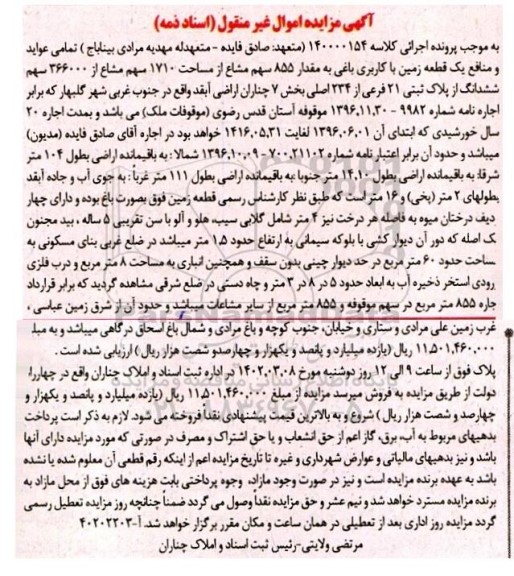 آگهی مزایده اموال غیر منقول (اسناد ذمه)
به موجب پرونده اجرائی کلاسه ۱۴۰۰۰۰۱۵۴ (متعهد: صادق فایده - متعهدله مهدیه مرادی بیناباج ) تمامی عواید
و منافع یک قطعه زمین با کاربری باغی به مقدار ۸۵۵ سهم مشاع از مساحت ۱۷۱۰ سهم مشاع از ۳۶۶۰۰۰ سهم
ششدانگ از پلاک ثبتی ۲۱ فرعی از ۲۳۴ اصلی بخش ۷ چناران اراضی آبقد واقع در جنوب غربی شهر گلبهار که برابر
اجاره نامه شماره ۹۹۸۲ - ۱۳۹۶.۱۱.۳۰ موقوفه آستان قدس رضوی (موقوفات ملک) می باشد و بمدت اجاره ۲۰
سال خورشیدی که ابتدای آن ۱۳۹۶.۰۶.۰۱ لغایت ۱۴۱۶.۰۵.۳۱ خواهد بود در اجاره آقای صادق فایده (مدیون)
میباشد و حدود آن برابر اعتبار نامه شماره ۷۰۰.۲۱۱۰۲ - ۱۳۹۶.۱۰.۰۹ شمالا: به باقیمانده اراضی بطول ۱۰۴ متر
شرقا: به باقیمانده اراضی بطول ۱۴.۱۰ متر جنوبا: به باقیمانده اراضی بطول ۱۱۱ متر غرباً: به جوی آب و جاده آبقد
بطولهای ۲ متر (پخی) و ۱۶ متر است که طبق نظر کارشناس رسمی قطعه زمین فوق بصورت باغ بوده و دارای چهار
دیف درختان میوه به فاصله هر درخت نیز ۴ متر شامل گلابی سیب، هلو و آلو با سن تقریبی ۵ ساله ، بید مجنون
تک اصله که دور آن دیوار کشی با بلوکه سیمانی به ارتفاع حدود ۱.۵ متر میباشد در ضلع غربی بنای مسکونی به
ساحت حدود ۶۰ متر مربع در حد دیوار چینی بدون سقف و همچنین انباری به مساحت ۸ متر مربع و درب فلزی
رودی استخر ذخیره آب به ابعاد حدود ۵ در ۸ در ۳ متر و چاه دستی در ضلع شرقی مشاهده گردید که برابر قرارداد
جاره ۸۵۵ متر مربع در سهم موقوفه و ۸۵۵ متر مربع از سایر مشاعات میباشد و حدود آن از شرق زمین عباسی ،
غرب زمین علی مرادی و ستاری و خیابان، جنوب کوچه و باغ مرادی و شمال باغ اسحاق درگاهی میباشد و به مبلـ
۱۱,۵۰۱,۴۶۰,۰۰۰ ریال (یازده میلیارد و پانصد و یکهزار و چهارصدو شصت هزار ریال ) ارزیابی شده است .
پلاک فوق از ساعت ۹ الی ۱۲ روز دوشنبه مورخ ۱۴۰۲.۰۳.۰۸ در اداره ثبت اسناد و املاک چناران واقع در چهاررا
دولت از طریق مزایده به فروش میرسد مزایده از مبلغ ۱۱,۵۰۱,۴۶۰,۰۰۰ ریال (یازده میلیارد و پانصد و یکهزار و
چهارصد و شصت هزار ریال ) شروع و به بالاترین قیمت پیشنهادی نقداً فروخته می شود. لازم به ذکر است پرداخت
بدهیهای مربوط به آب، برق، گاز اعم از حق انشعاب و یا حق اشتراک و مصرف در صورتی که مورد مزایده دارای آنها
باشد و نیز بدهیهای مالیاتی و عوارض شهرداری و غیره تا تاریخ مزایده اعم از اینکه رقم قطعی آن معلوم شده یا نشده
باشد به عهده برنده مزایده است و نیز در صورت وجود مازاد، وجوه پرداختی بابت هزینه های فوق از محل مازاد به
برنده مزایده مسترد خواهد شد و نیم عشر و حق مزایده نقداً وصول می گردد ضمناً چنانچه روز مزایده تعطیل رسمی
گردد مزایده روز اداری بعد از تعطیلی در همان ساعت و مکان مقرر برگزار خواهد شد. آ-۴۰۲۰۲۲۰۳
مرتضی ولایتی-رئیس ثبت اسناد و املاک چناران